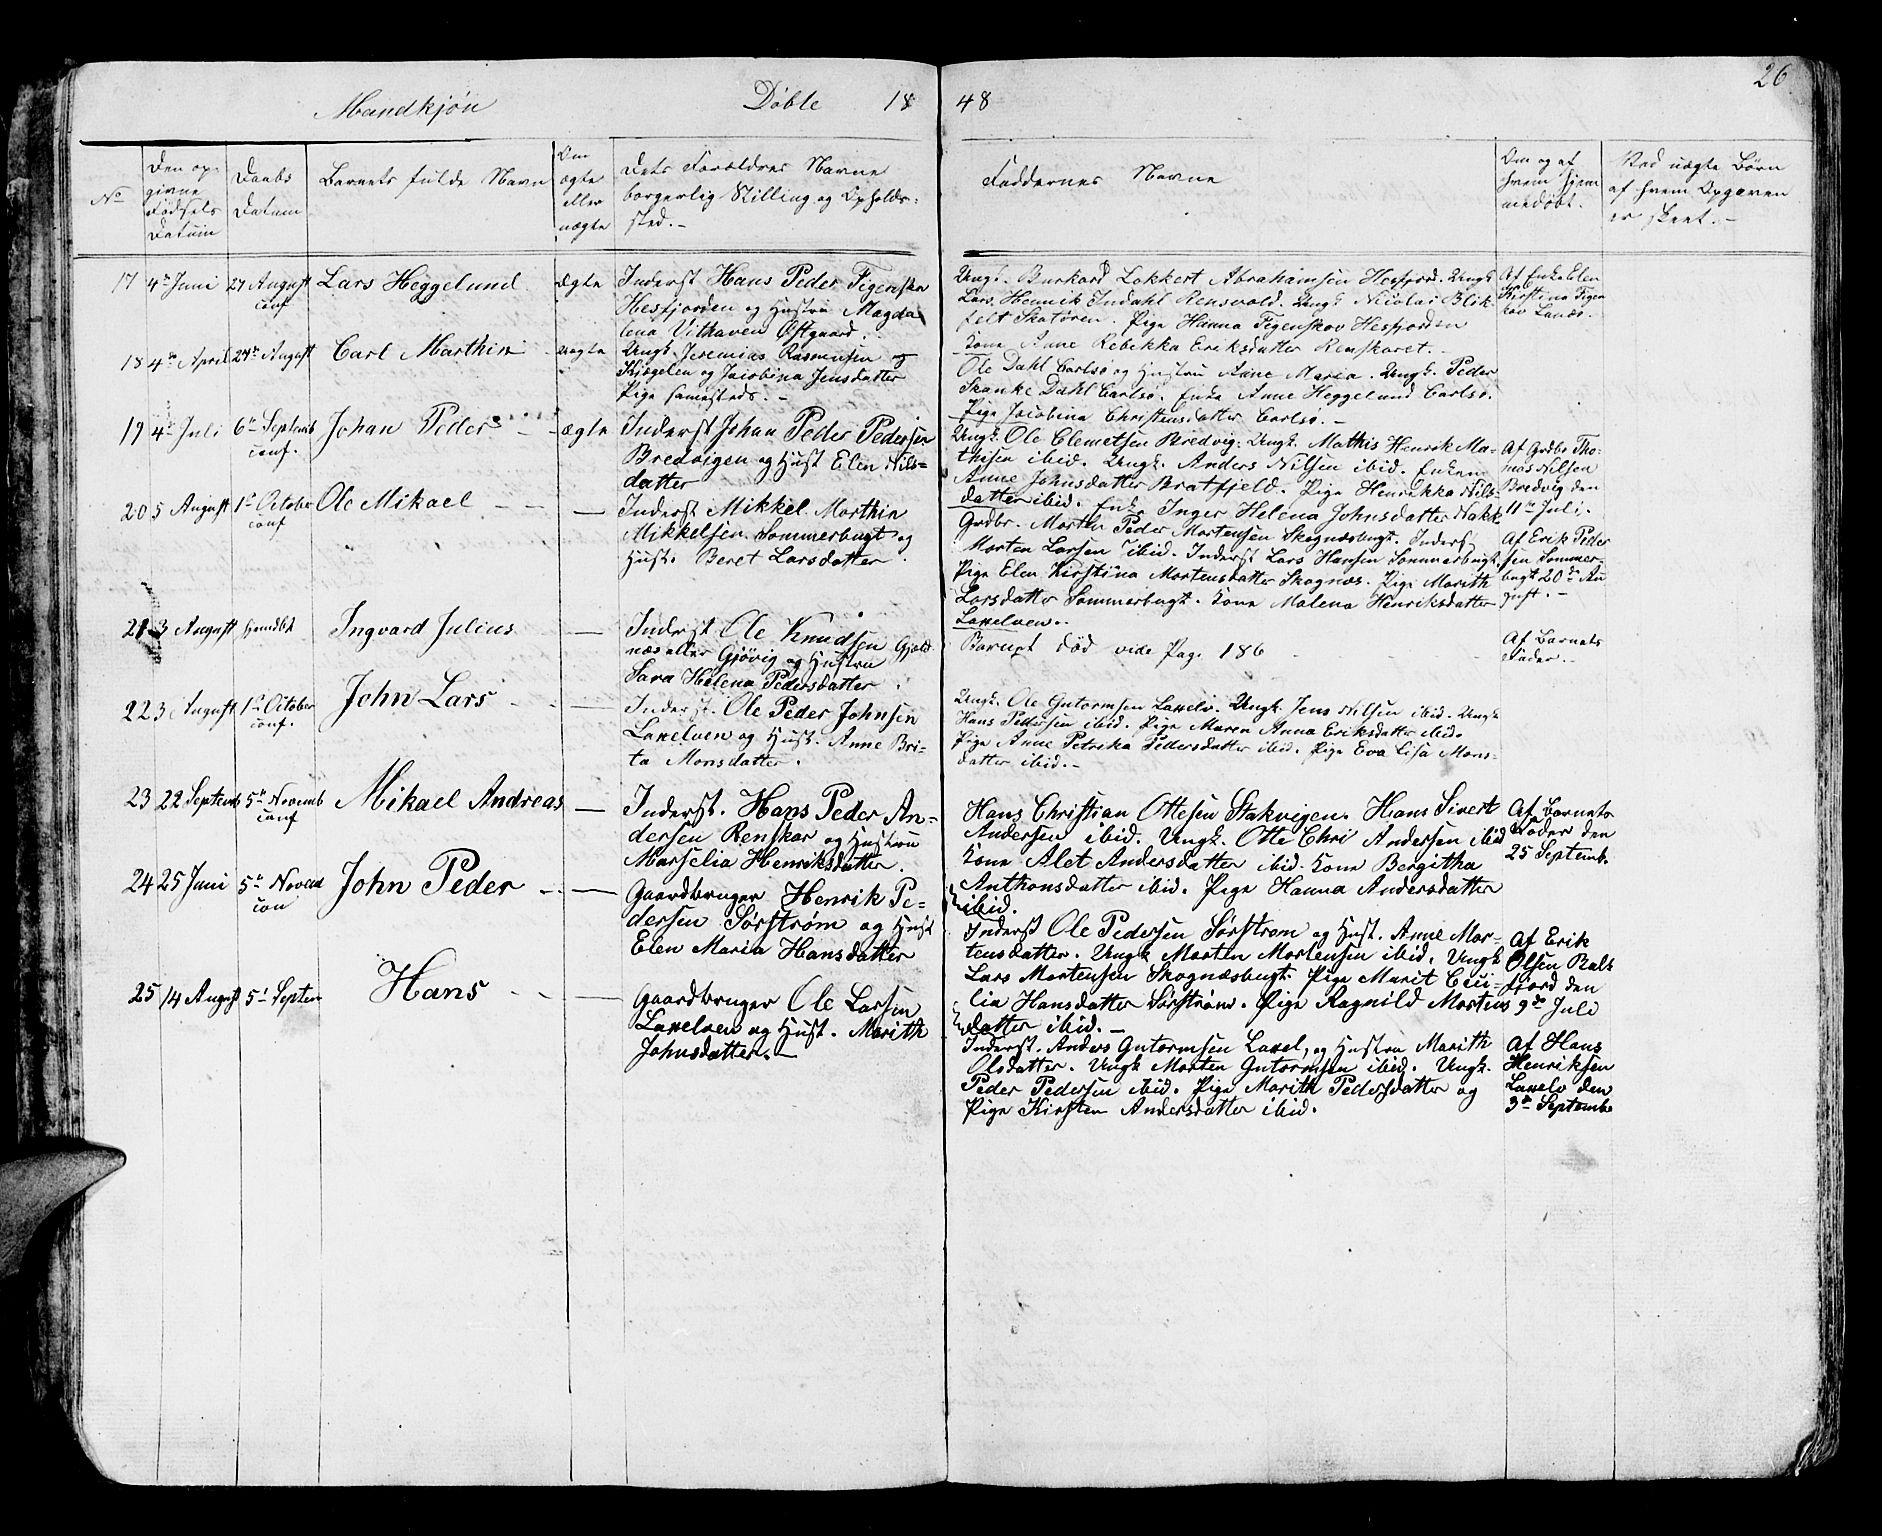 26
Mandkjøn Døbte 18 48
No
Den op-
givne
Fødsels
Datum
Daabs
Datum
Barnets fulde Navn
Om
ægte
eller
uægte
Dets Forældres Navne
borgerlig Stilling og Opholds-
sted.-
Faddernes Navne
Om og af
hvem hjem
medøbt.
Ved uægte Børn
af hvem Opgaven
er skeet.-
17 4de Juni 27 August
conf
Lars Heggelund
ægte
Inderst Hans Peder Figenskov
Hesfjorden og Hustru Magda
lena Vithaven Østgaard.
Ungk. Burkard Lokkert Abrahamsen Hesfjord. Ungk
Lars Henrik Indahl Rensvold. Ungk Nicolai Blik-
felt Skatøren. Pige Hanna Figenskov Hesfjorden
Kone Anne Rebekka Eriksdatter Renskaret.-
Af Enke Elen
Kirstina Figen
skov Lanes.
18 4de April 27de August
Carl Marthin
uægte
Ungk. Jeremias Rasmussen og
og Jacobina Jensdatter
Pige sammesteds.-
Ole Dahl Carlsø og Hustru Anne Maria. Ungk. Peder
Skanke Dahl Carlsø. Enke Anne Heggelund Carlsø.
Pige Jacobina Christensdatter Carlsø.-
19 4de Juli 6te Septemb
conf.
Johan Peder
ægte
Inderst Johan Peder Pedersen
Bredvigen og Hust Elen Nils-
datter
Ungk. Ole Clemetsen Bredvig. Ungk. Mathis Henrik Ma-
thisen ibid. Ungk. Anders Nilsen ibid. Enken
Anne Johnsdatter Bratfjeld. Pige Henrikka Nils-
datter ibid. Enke Inger Helena Johnsdatter
Af Grdbr Tho-
mas Nilsen
Bredvig den
11te Juli.
20 5 August 1te October
conf
Ole Mikael
Inderst Mikkel Marthin
Mikkelsen Sommerbugt og
Hust. Beret Larsdatter
Grdbr. Morten Peder Mortensen Skognæsbugt. Inderst
Morten Larsen ibid. Inderst Lars Hansen Sommerbugt.
Pige Elen Kirstina Mortensdatter Skognæs. Pige Marith
Larsdatter Sommerbugt. Kone Malena Henriksdatter
Laxelven.
Af Erik Peder
sen Sommer-
bugt 20de Au
gust.-
21 3 August hjemdbt
Ingvard Julius
Inderst Ole Knudsen
Gjøvig og Hustru
Sara Helena Pedersdatter
Barnet død vide Pag. 186
Af Barnets
Fader.-
22 3 August 1te October
conf.
John Lars
Inderst. Ole Peder Johnsen
Laxelven og Hust. Anne Bri-
ta Monsdatter.
Ungk. Ole Gutormsen Laxelv. Ungk Jens Nilsen ibid. Ungk
Hans Pedersen ibid. Pige Maren Anna Eriksdatter ibid.
Pige Anne Petrika Pedersdatter ibid. Pige Eva Lisa Mons-
datter ibid.-
23 22 Septemb 5te Novemb
conf
Mikael Andreas
Inderst. Hans Peder An-
dersen Renskar og Hustru
Marselia Henriksdatter.
Hans Christian Ottesen Stakvigen. Hans Sivert
Andersen ibid. Ungk. Otte Chri Andersen ibid
Kone Alet Andersdatter ibid. Kone Bergitha
Anthonsdatter ibid. Pige Hanna Andersdatter
ibid.
Af Barnets
Fader den
25 Septemb.
24 25 Juni 5te Novem
con
John Peder
Gaardbruger Henrik Pe-
dersen Sørstrøm og Hust
Elen Maria Hansdatter
Inderst Ole Pedersen Sørstrøm og Hust. Anne Mor-
tensdatter. Ungk Morten Mortensen ibid. Ungk
Lars Mortensen Skognæsbugt. Pige Marit Ceci-
lia Hansdatter Sørstrøm. Pige Ragnild Mortens
datter ibid.-
Af Erik
Olsen Bals
fjord den
9de Juli
25 14 August 5te Septem
Hans
Gaardbruger Ole Larsen
Laxelven og Hust. Marith
Johnsdatter.-
Inderst. Anders Gutormsen Laxel, og Hustru Marith
Olsdatter. Ungk Morten Gutormsen ibid. Ungk.
Peder Pedersen ibid. Pige Marith Pedersdatter og
Pige Kirsten Andersdatter ibid.
Af Hans
Henriksen
Laxelv den
3de Septembe